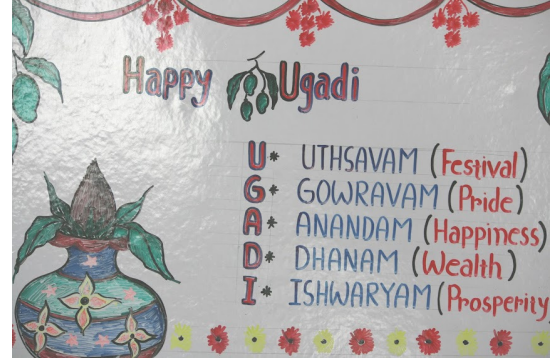 Happy Ugadi
U* UTHSAVAM (Festival)
G* GOWRAVAM (Pride)
A* ANANDAM (Happiness)
D* DHANAM (Wealth)
I* ISHWARYAM (Prosperity